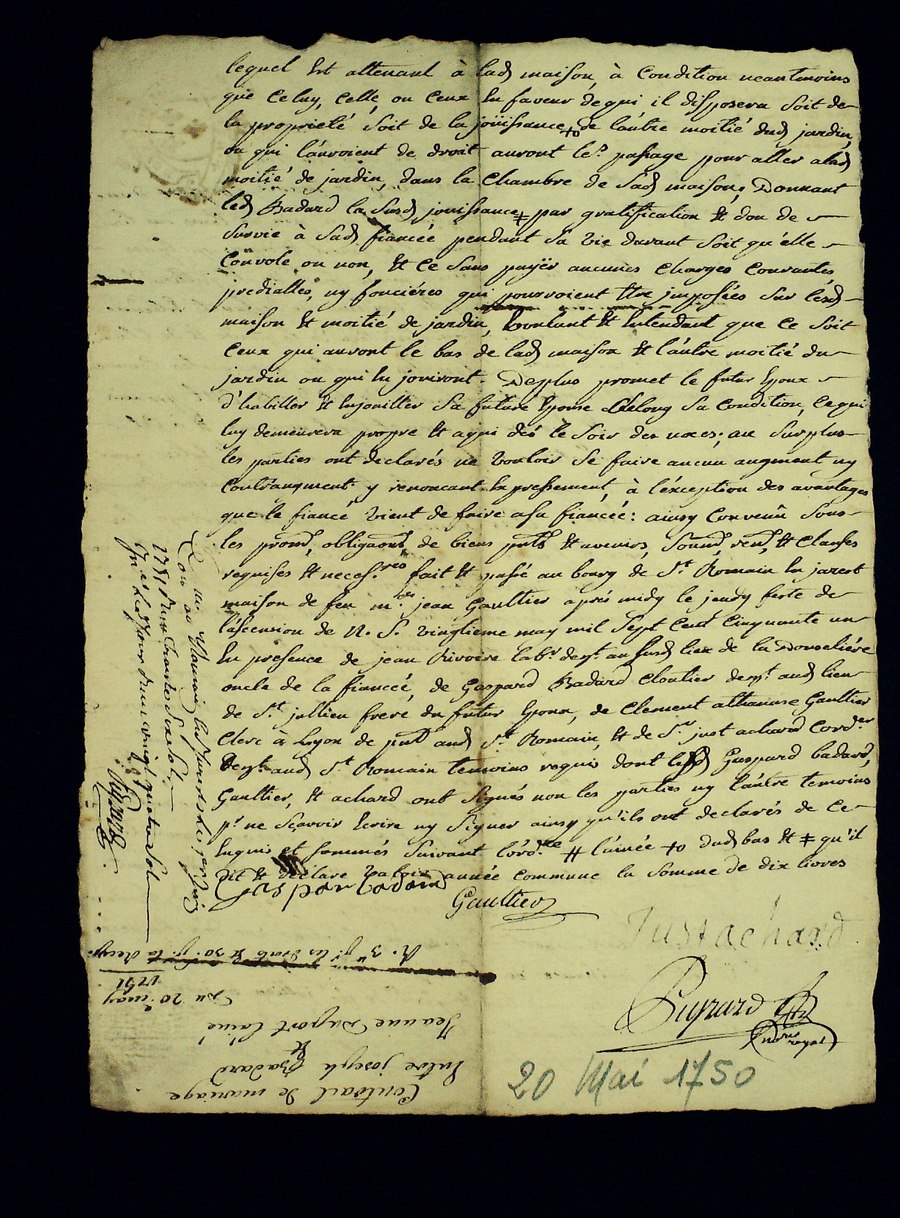 lequel Est attenant à lad maison, à Condition neantmoins
que Celuy, Celle, ou Ceux En faveur de qui il disposera Soit de
la proprieté Soit de la joüissance + de l'autre moitié dud jardin,
ou qui l'auroient de droit auront le passage pour aller alad
moitié de jardin, dans la Chambre de Sad maison; Donnant
led Badard la Susd jouissance ǂ par gratification & don de
Survie à Sad fiancée pendant Sa vie durant Soit qu'elle
Convole ou non, Et Ce Sans payër aucunes Charges Courantes
predialles, ny fonciéres qui pourroient Etre imposées Sur lesd
maison Et moitié de jardin, Voulant Et Entendant que Ce Soit
Ceux qui auront le bas de lad maison Et l'autre moitié du
jardin ou qui En jouiront. Deplus promet le futur Epoux
d'habiller Et Enjoailler Sa future Epouse Selong Sa Condition, Ce qui
luy demeurera propre Et aquis dés le Soir des noces; au Surplus
les parties ont declarés ne Vouloir Se faire aucun augment ny
Contraugment y renoncant Expressement, à l'éxception des avantages
que le fiancé Vient de faire asa fiancée: ainsy Convenû Sous
les prom, obligaons de biens pnts & avenirs, Soum, ren, & Clauses
requises Et necess.res fait Et passé au bourg de St Romain En jarest
maison de feu me jean Gaultier aprés midy le jeudy feste de
l'ascension de N. S. vingtieme may mil Sept Cent Cinquante un
En presence de jean Rivoire labr demt au susd lieu de la Donseliére
oncle de la fiancée, de Gaspard Badard Cloutier demt aud lieu
de St jullien frere du futur Epoux, de Clement athanase Gaultier
Clerc à Lyon de pnt aud St Romain, & de Sr just achard Cordier
demt aud St Romain temoins requis dont lesd Gaspard badard,
Gaultier, & achard ont Signés non les parties ny l'autre temoins
pr ne Scavoir Ecrire ny Signer ainsy qu'ils ont declarés de Ce
Enquis et Sommés Suivant l'ordce # l'ainée + dud bas Et ǂ qu'il
Dit & declare Valoir année commune la Somme de dix livres
Gaspar badard
Gaultier
Just achard
Peyrard
no.re royal
1751
vingt quatre Sols
R. 3
Du 20e may
1751
Contrat de mariage
Entre joseph Badard
&
Jeanne Duport l'ainé
20 Mai 1750